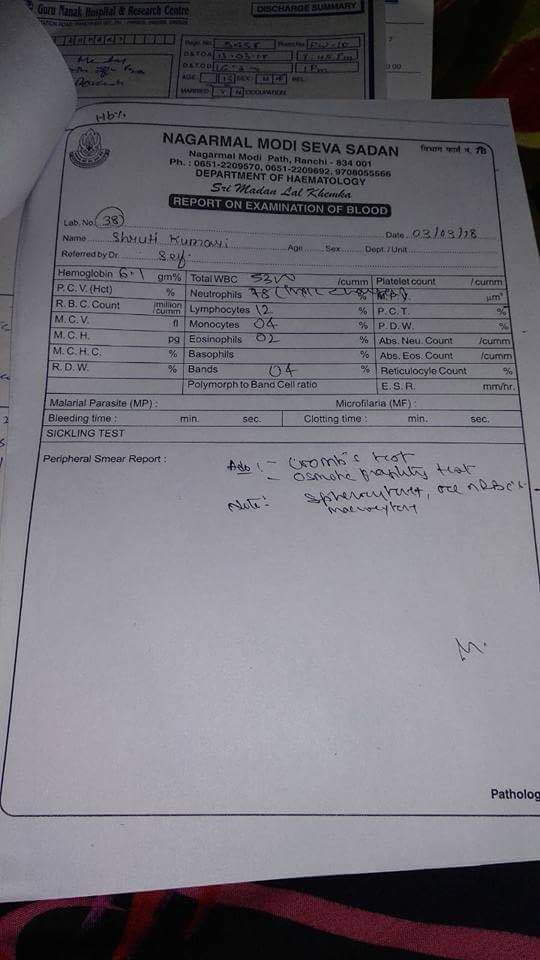 Guru Nanak Hospital & Research Centre
DISCHARGE SUMMARY
Regn. No. 3258 Room No.
D & T O A
D & T O D 1 Pm
AGE SEX M F REL.
MARRIED Y N OCCUPATION
Hb%
NAGARMAL MODI SEVA SADAN
विभाग फार्म न.
Nagarmal Modi Path, Ranchi - 834 001
Ph. : 0651-2209570, 0651-2209692, 9708055566
DEPARTMENT OF HAEMATOLOGY
Sri Madan Lal Khemka
REPORT ON EXAMINATION OF BLOOD
Lab. No. 38
Date 03/03/18
Name Shruti Kumari Age Sex Dept./Unit
Referred by Dr. Self
Hemoglobin 6.1 gm% Total WBC /cumm Platelet count / cumm
P.C.V. (Hct) % Neutrophils 78 % M.P.V. µm³
R.B.C. Count million /cumm Lymphocytes 12 % P.C.T. %
M.C.V. fl Monocytes 04 % P.D.W. %
M.C.H. pg Eosinophils 02 % Abs. Neu. Count /cumm
M.C.H.C. % Basophils % Abs. Eos. Count /cumm
R.D.W. % Bands 04 % Reticulocyle Count %
Polymorph to Band Cell ratio E.S.R. mm/hr.
Malarial Parasite (MP) : Microfilaria (MF) :
Bleeding time : min. sec. Clotting time : min. sec.
SICKLING TEST
Peripheral Smear Report :
Adv :- Coomb's test
- Osmotic fragility test
Note: Spherocytes+, occ nRBC's
macrocytes+
Patholog